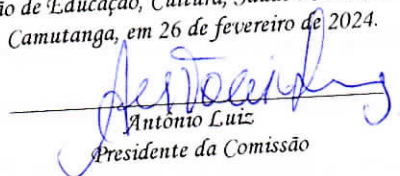 ão de Educação, Cultura,
Camutanga, em 26 de fevereiro de 2024.
Antônio Luiz
Presidente da Comissão